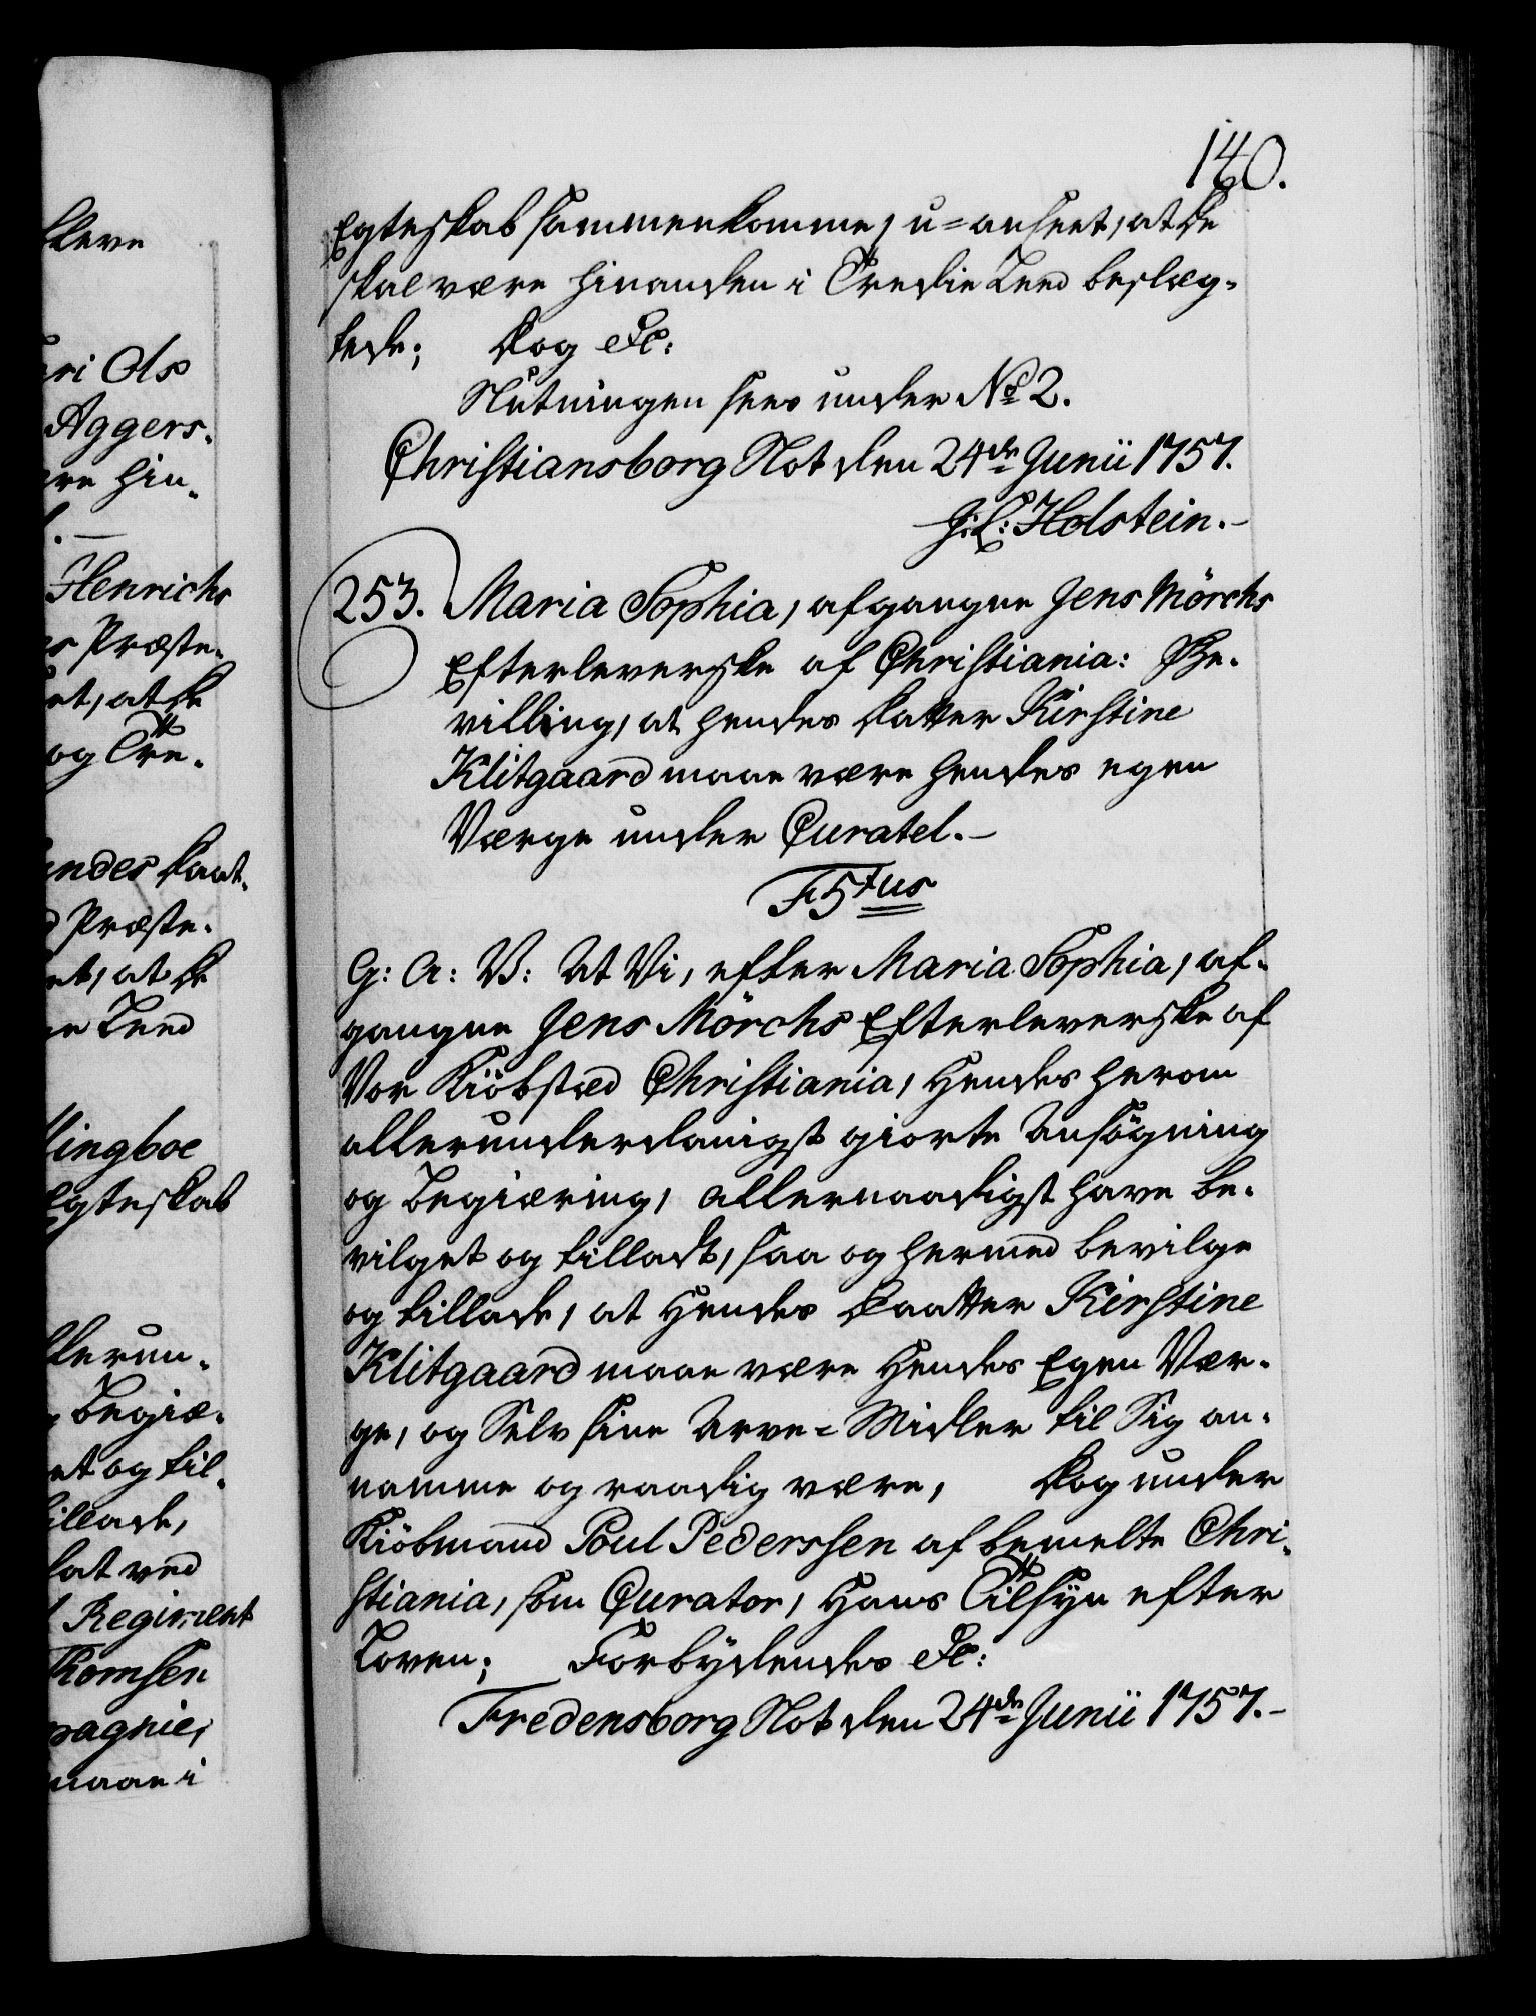 140.
Egteskab sammenkomme, u-anseet, at de
skal være hinanden i Tredie Leed beslæg-
tede; Dog &c:
Slutningen sees under No 2.
Christiansborg Slot den 24de Junii 1757.
J: L: Holstein.-
253. Maria Sophia, afgangne Jens Mörchs
Efterleverske af Christiania: Be-
villing, at hendes Datter Kirstine
Klitgaard maae være hendes egen
Værge under Curatel.-
F5tus
G: A: V: At Vi, efter Maria Sophia, af-
gangne Jens Mörchs Efterleverske af
Vor Kiöbstæd Christiania, Hendes herom
allerunderdanigst giorte Ansögning
og Begiæring, allernaadigst have be-
vilget og tilladt, saa og hermed bevilge
og tillade, at Hendes Daatter Kirstine
Klitgaard maae være Hendes Egen Vær-
ge, og Selv sine Arve-Midler til Sig an-
namme og raadig være, Dog under
Kiöbmand Poul Pederssen af bemelte Chri-
stiania, som Curator, Hans Tilsyn efter
Loven; Forbydendes &c:
Fredensborg Slot den 24de Junii 1757.-
bleve
ri Ols
Aggers-
ære hin-
Henrichs
Præste-
et, at de
og Tre-
endes Daat-
Præste-
et, at de
Leed
lingboe
Egteskab
llerun-
Begiæ-
et og til-
tillade,
dat ved
Regiment
Thomsen
pagnie,
maae i